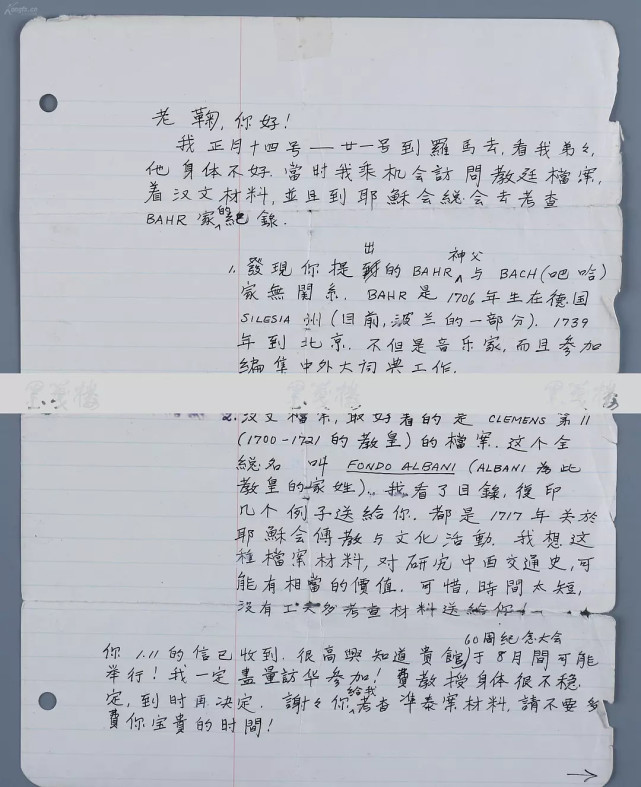 老鞠,你好!
我正月十四号—廿一号到羅馬去,看我弟々,
他身体不好.當时我乘机会訪問教廷檔案,
着汉文材料,並且到耶穌会総会去考查
BAHR 家的紀錄.
1.發現你提出的 BAHR 神父与 BACH(吧哈)
家無関系. BAHR 是 1706 年生在德国
SILESIA 州(目前,波兰的一部分). 1739
年到北京.不但是音乐家,而且参加
編集中外大词典工作.
2.汉文檔案,最好看的是 CLEMENS 第11
(1700-1721 的教皇)的檔案.这个全
総名 叫 FONDO ALBANI (ALBANI 為此
教皇的家姓).我看了目録,復印
几个例子送給你.都是 1717 年关於
耶穌会傳教与文化活動.我想这
種檔案材料,对研究中西交通史,可
能有相當的價值.可惜,時間太短,
没有工夫多考查材料送給你!
你 1.11 的信已收到.很高興知道貴館60周纪念大会于8月間可能
举行!我一定盡量訪华参加!費教授身体很不穩
定,到时再决定. 謝々你給我考查準泰案材料,請不要多
費你宝貴的时間!